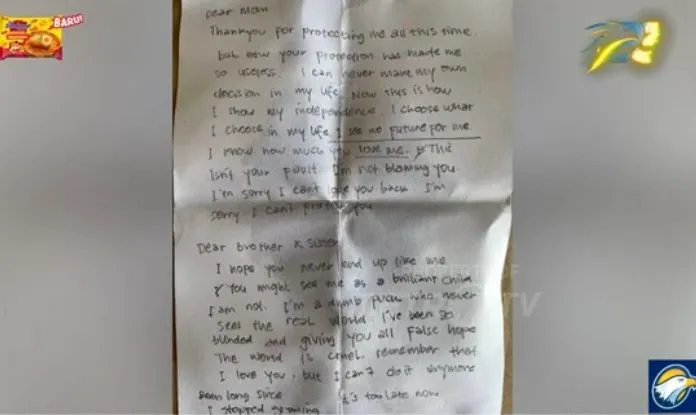 BARU!
Dear Mom
Thankyou for protecting me all this time.
but now your protection has made me
so useless. I can never make my own
decision in my life. Now this is how
I show my independence. I choose what
I choose in my life. I see no future for me.
I know how much you love me. This
isn't your fault. I'm not blaming you
I'm sorry I can't love you back. I'm
sorry I can't protect you
Dear Brother & Sister
I hope you never end up like me
You might see me as a brilliant child
I am not. I'm a dumb fuck who never
sees the real world I've been so
blinded and giving you all false hope
The world is cruel. remember that
I love you. but I can't do it anymore
been long since it's too late now
I stopped
TV